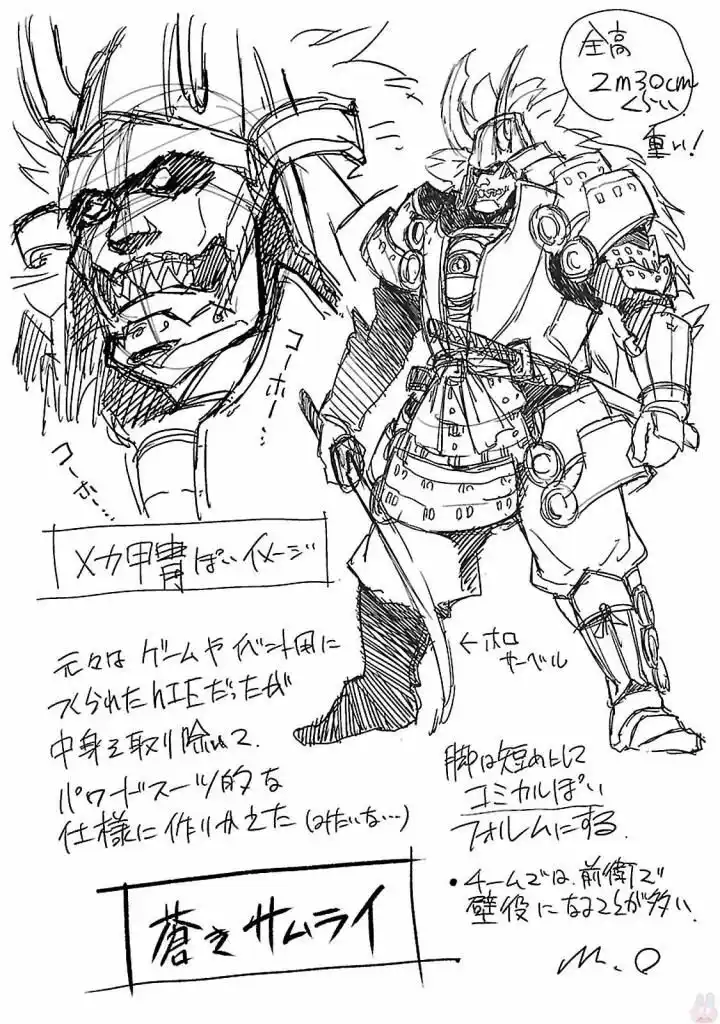 全高
2m30cm
くらい
重い!
コーホー…
コーホー…
メカ甲冑ぽいイメージ
元々はゲームやイベント用に
つくられたhIEだったが
中身を取り除いて
パワードスーツ的な
仕様に作りかえた(みたいな…)
←ホロ
サーベル
脚は短めにして
コミカルぽい
フォルムにする
・チームでは、前衛で
壁役になることが多い
蒼きサムライ
M.O